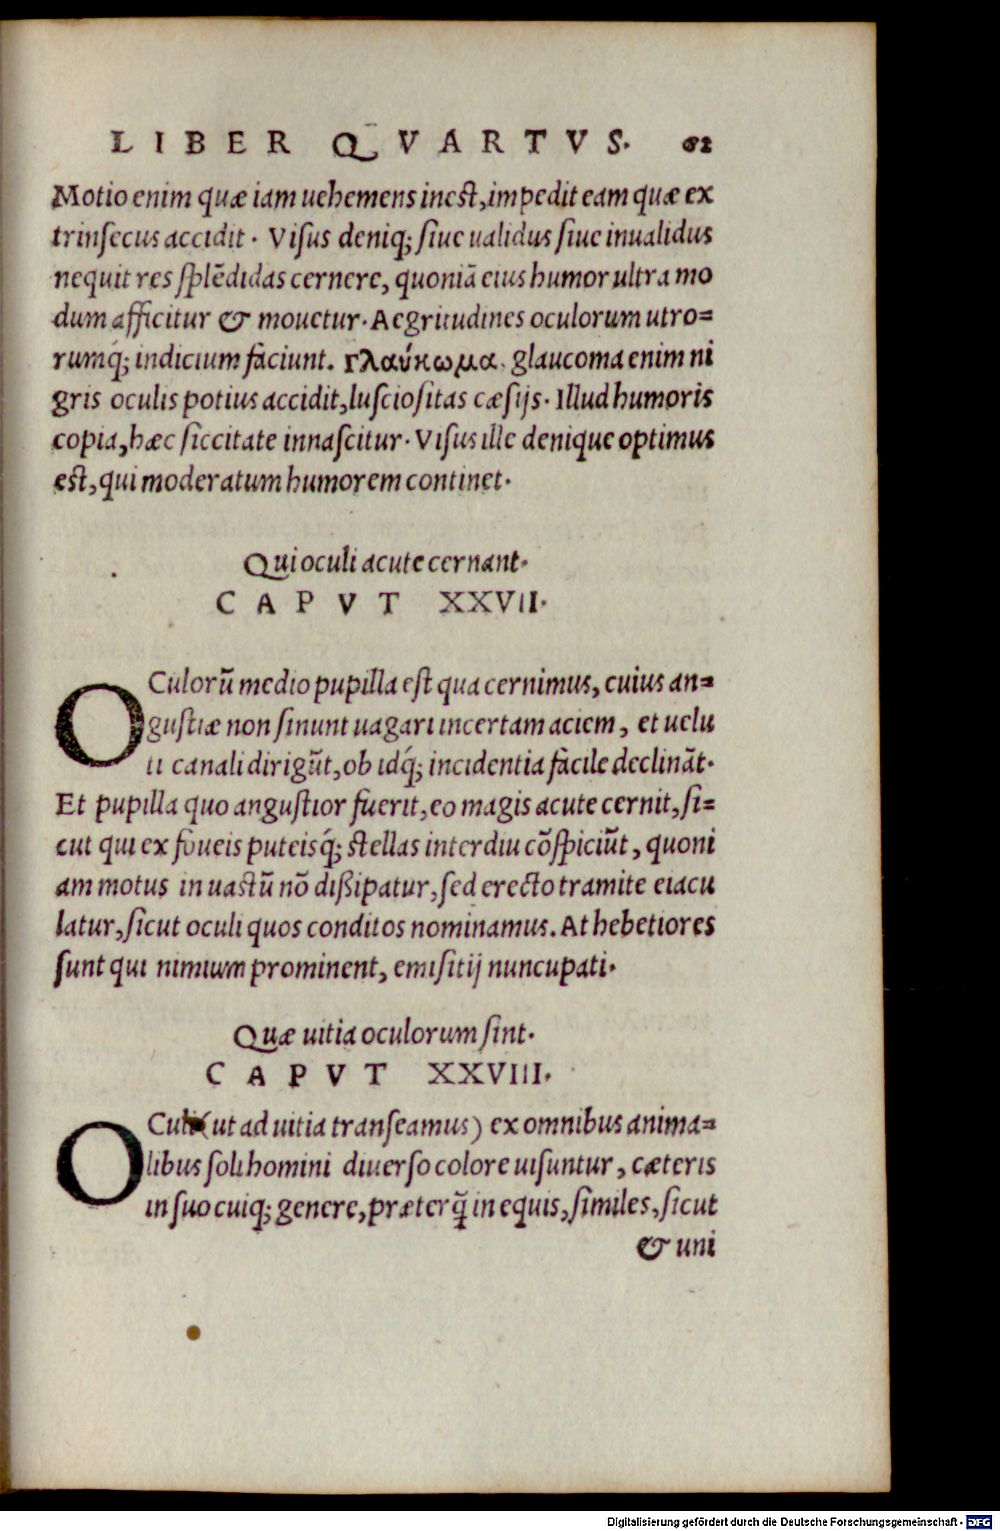 LIBER QVARTVS. 62
Motio enim quæ iam uehemens inest, impedit eam quæ ex
trinsecus accidit. Visus deniq; siue ualidus siue inualidus
nequit res splēdidas cernere, quoniā eius humor ultra mo
dum afficitur & mouetur. Aegritudines oculorum utro=
rumq́; indicium faciunt. γλαύκωμα, glaucoma enim ni
gris oculis potius accidit, lusciositas cæsijs. Illud humoris
copia, hæc siccitate innascitur. Visus ille denique optimus
est, qui moderatum humorem continet.
Qui oculi acute cernant.
CAPVT XXVII.
OCulorū medio pupilla est qua cernimus, cuius an=
gustiæ non sinunt uagari incertam aciem, et uelu
ti canali dirigūt, ob idq́; incidentia facile declināt.
Et pupilla quo angustior fuerit, eo magis acute cernit, si=
cut qui ex foueis puteisq́; stellas interdiu cōspiciūt, quoni
am motus in uastū nō dißipatur, sed erecto tramite eiacu
latur, sicut oculi quos conditos nominamus. At hebetiores
sunt qui nimium prominent, emisitij nuncupati.
Quæ uitia oculorum sint.
CAPVT XXVIII.
OCuli (ut ad uitia transeamus) ex omnibus anima=
libus soli homini diuerso colore uisuntur, cæteris
in suo cuiq; genere, præterq̄ in equis, similes, sicut
& uni
Digitalisierung gefördert durch die Deutsche Forschungsgemeinschaft - DFG